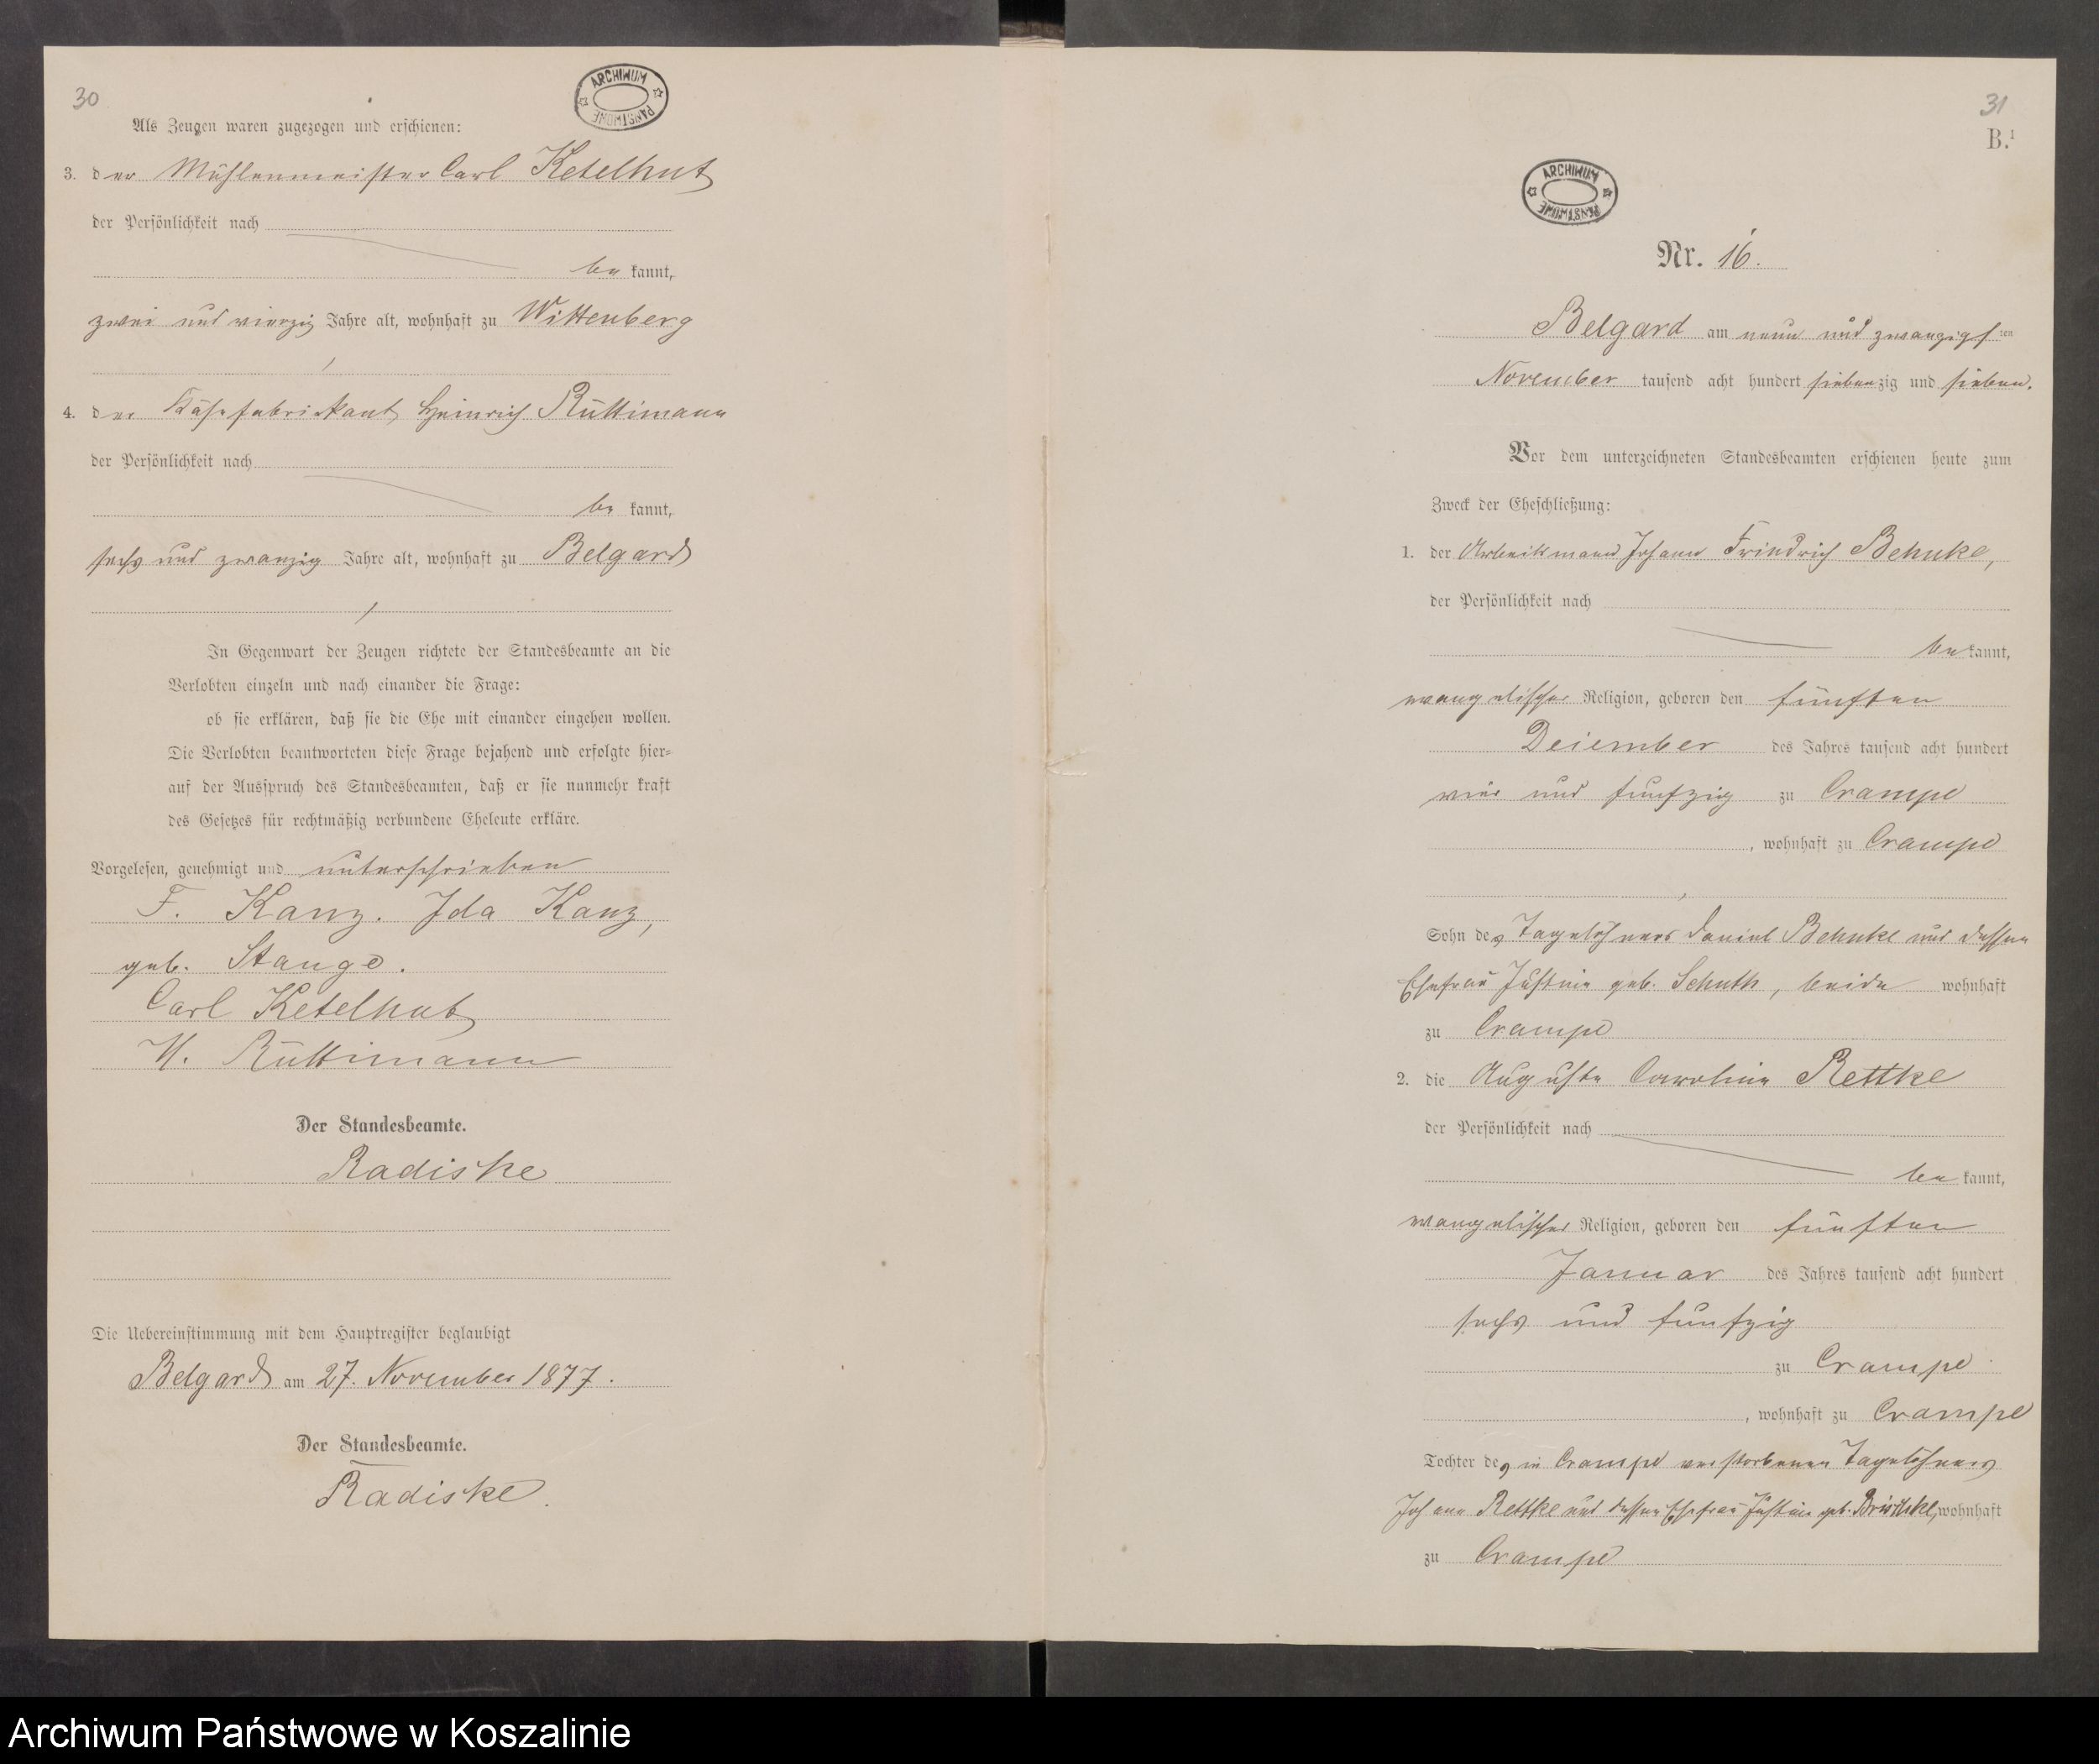 30
ARCHIWUM PAŃSTWOWE
Als Zeugen waren zugezogen und erschienen:
3. der Mühlenmeister Carl Ketelhut
der Persönlichkeit nach
be kannt,
zwei und vierzig Jahre alt, wohnhaft zu Wittenberg
4. der Käsefabrikant Heinrich Rüttimann
der Persönlichkeit nach
be kannt,
sechs und zwanzig Jahre alt, wohnhaft zu Belgard
In Gegenwart der Zeugen richtete der Standesbeamte an die
Verlobten einzeln und nach einander die Frage:
ob sie erklären, daß sie die Ehe mit einander eingehen wollen.
Die Verlobten beantworteten diese Frage bejahend und erfolgte hier-
auf der Ausspruch des Standesbeamten, daß er sie nunmehr kraft
des Gesetzes für rechtmäßig verbundene Eheleute erkläre.
Vorgelesen, genehmigt und unterschrieben
F. Kanz. Ida Kanz,
geb. Stange.
Carl Ketelhut
H. Rüttimann
Der Standesbeamte.
Radiske
Die Uebereinstimmung mit dem Hauptregister beglaubigt
Belgard am 27. November 1877.
Der Standesbeamte.
Radiske.
31
B.¹
ARCHIWUM PAŃSTWOWE
Nr. 16.
Belgard am neun und zwanzigsten
November tausend acht hundert siebenzig und sieben.
Vor dem unterzeichneten Standesbeamten erschienen heute zum
Zweck der Eheschließung:
1. der Arbeitsmann Johann Friedrich Behnke,
der Persönlichkeit nach
be kannt,
evangelischer Religion, geboren den fünften
Deiember des Jahres tausend acht hundert
vier und funfzig zu Crampe
, wohnhaft zu Crampe
Sohn des Tagelöhners Daniel Behnke und dessen
Ehefrau Justine geb. Schuth, beide wohnhaft
zu Crampe
2. die Auguste Caroline Rettke
der Persönlichkeit nach
be kannt,
evangelischer Religion, geboren den fünften
Januar des Jahres tausend acht hundert
sechs und funfzig
zu Crampe
, wohnhaft zu Crampe
Tochter des in Crampe verstorbenen Tagelöhners
Johann Rettke und dessen Ehefrau Justine geb. wohnhaft
zu Crampe
Archiwum Państwowe w Koszalinie